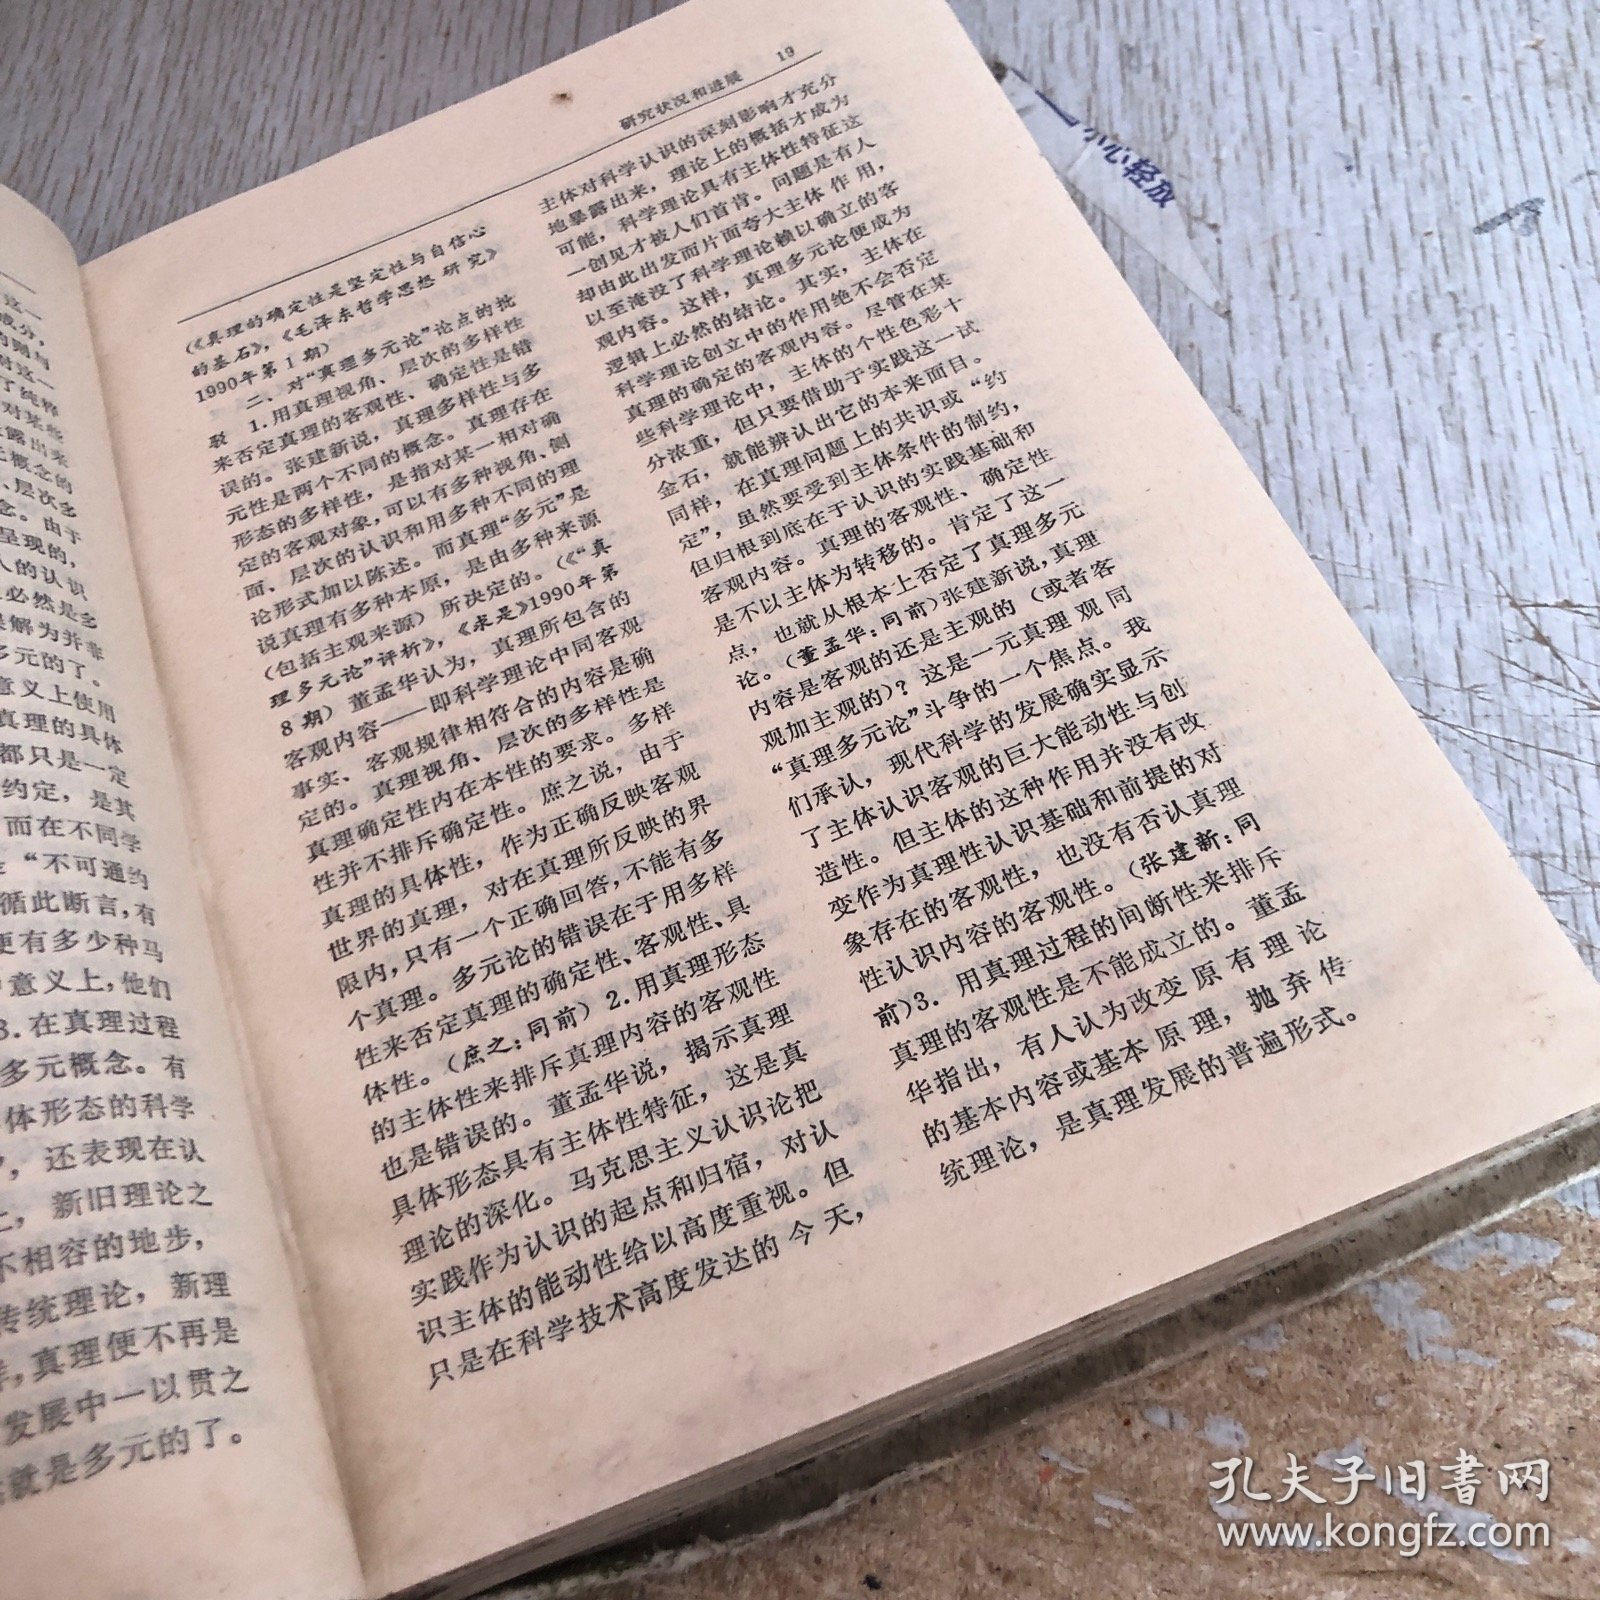 研究状况和进展 19
(《真理的确定性是坚定性与自信心
的基石》，《毛泽东哲学思想研究》
1990年第1期)
二、对“真理多元论”论点的批
驳 1.用真理视角、层次的多样性
来否定真理的客观性、确定性是错
误的。张建新说，真理多样性与多
元性是两个不同的概念。真理存在
形态的多样性，是指对某一相对确
定的客观对象，可以有多种视角、侧
面、层次的认识和用多种不同的理
论形式加以陈述。而真理“多元”是
说真理有多种本原，是由多种来源
(包括主观来源）所决定的。(《“真
理多元论”评析》，《求是》1990年第
8期）董孟华认为，真理所包含的
客观内容——即科学理论中同客观
事实、客观规律相符合的内容是确
定的。真理视角、层次的多样性是
真理确定性内在本性的要求。多样
性并不排斥确定性。庶之说，由于
真理的具体性，作为正确反映客观
世界的真理，对在真理所反映的界
限内，只有一个正确回答，不能有多
个真理。多元论的错误在于用多样
性来否定真理的确定性、客观性、具
体性。(庶之：同前）2.用真理形态
的主体性来排斥真理内容的客观性
也是错误的。董孟华说，揭示真理
具体形态具有主体性特征，这是真
理论的深化。马克思主义认识论把
实践作为认识的起点和归宿，对认
识主体的能动性给以高度重视。但
只是在科学技术高度发达的今天，
主体对科学认识的深刻影响才充分
地暴露出来，理论上的概括才成为
可能，科学理论具有主体性特征这
一创见才被人们首肯。问题是有人
却由此出发而片面夸大主体作用，
以至淹没了科学理论赖以确立的客
观内容。这样，真理多元论便成为
逻辑上必然的结论。其实，主体在
科学理论创立中的作用绝不会否定
真理的确定的客观内容。尽管在某
些科学理论中，主体的个性色彩十
分浓重，但只要借助于实践这一试
金石，就能辨认出它的本来面目。
同样，在真理问题上的共识或“约
定”，虽然要受到主体条件的制约，
但归根到底在于认识的实践基础和
客观内容。真理的客观性、确定性
是不以主体为转移的。肯定了这一
点，也就从根本上否定了真理多元
论。(董孟华：同前)张建新说，真理
内容是客观的还是主观的（或者客
观加主观的)？这是一元真理观同
“真理多元论”斗争的一个焦点。我
们承认，现代科学的发展确实显示
了主体认识客观的巨大能动性与创
造性。但主体的这种作用并没有改
变作为真理性认识基础和前提的对
象存在的客观性，也没有否认真理
性认识内容的客观性。(张建新：同
前)3．用真理过程的间断性来排斥
真理的客观性是不能成立的。董孟
华指出，有人认为改变原有理论
的基本内容或基本原理，抛弃传
统理论，是真理发展的普遍形式。
这一
成分，
的则与
对这一
了纯粹
对某些
露出来
概念的
、层次多
念。由于
呈现的，
人的认识
必然是多
解为并非
多元的了。
意义上使用
真理的具体
都只是一定
约定，是其
而在不同学
“不可通约
循此断言，有
便有多少种马
意义上，他们
3.在真理过程
多元概念。有
体形态的科学
，还表现在认
上，新旧理论之
不相容的地步，
传统理论，新理
，真理便不再是
发展中一以贯之
就是多元的了。
小心轻放
孔夫子旧书网
www.kongfz.com